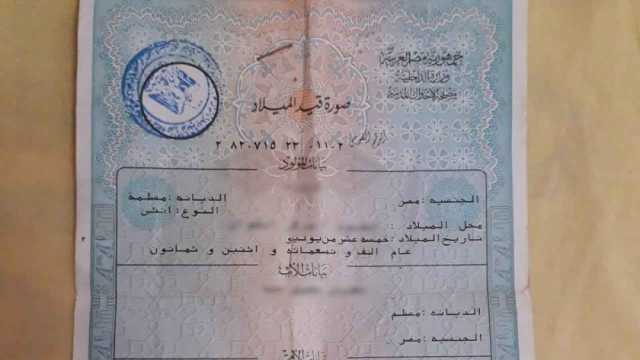 جمهورية مصر العربية
وزارة الداخلية
مصلحة الأحوال المدنية
صورة قيد الميلاد
الرقم القومى ٢ ٨٢٠٧١٥ ٢٢ ٠١١٠٢
بيانات المولود
الجنسيه :مصر الديانه :مسلمة
النوع :انثى
محل الميلاد :
تاريخ الميلاد :خمسه عشر من يوليو
عام الف و تسعمائه و اثنين و ثمانون
بيانات الأب
الديانه :مسلم
الجنسيه :مصر
بيانات الأم